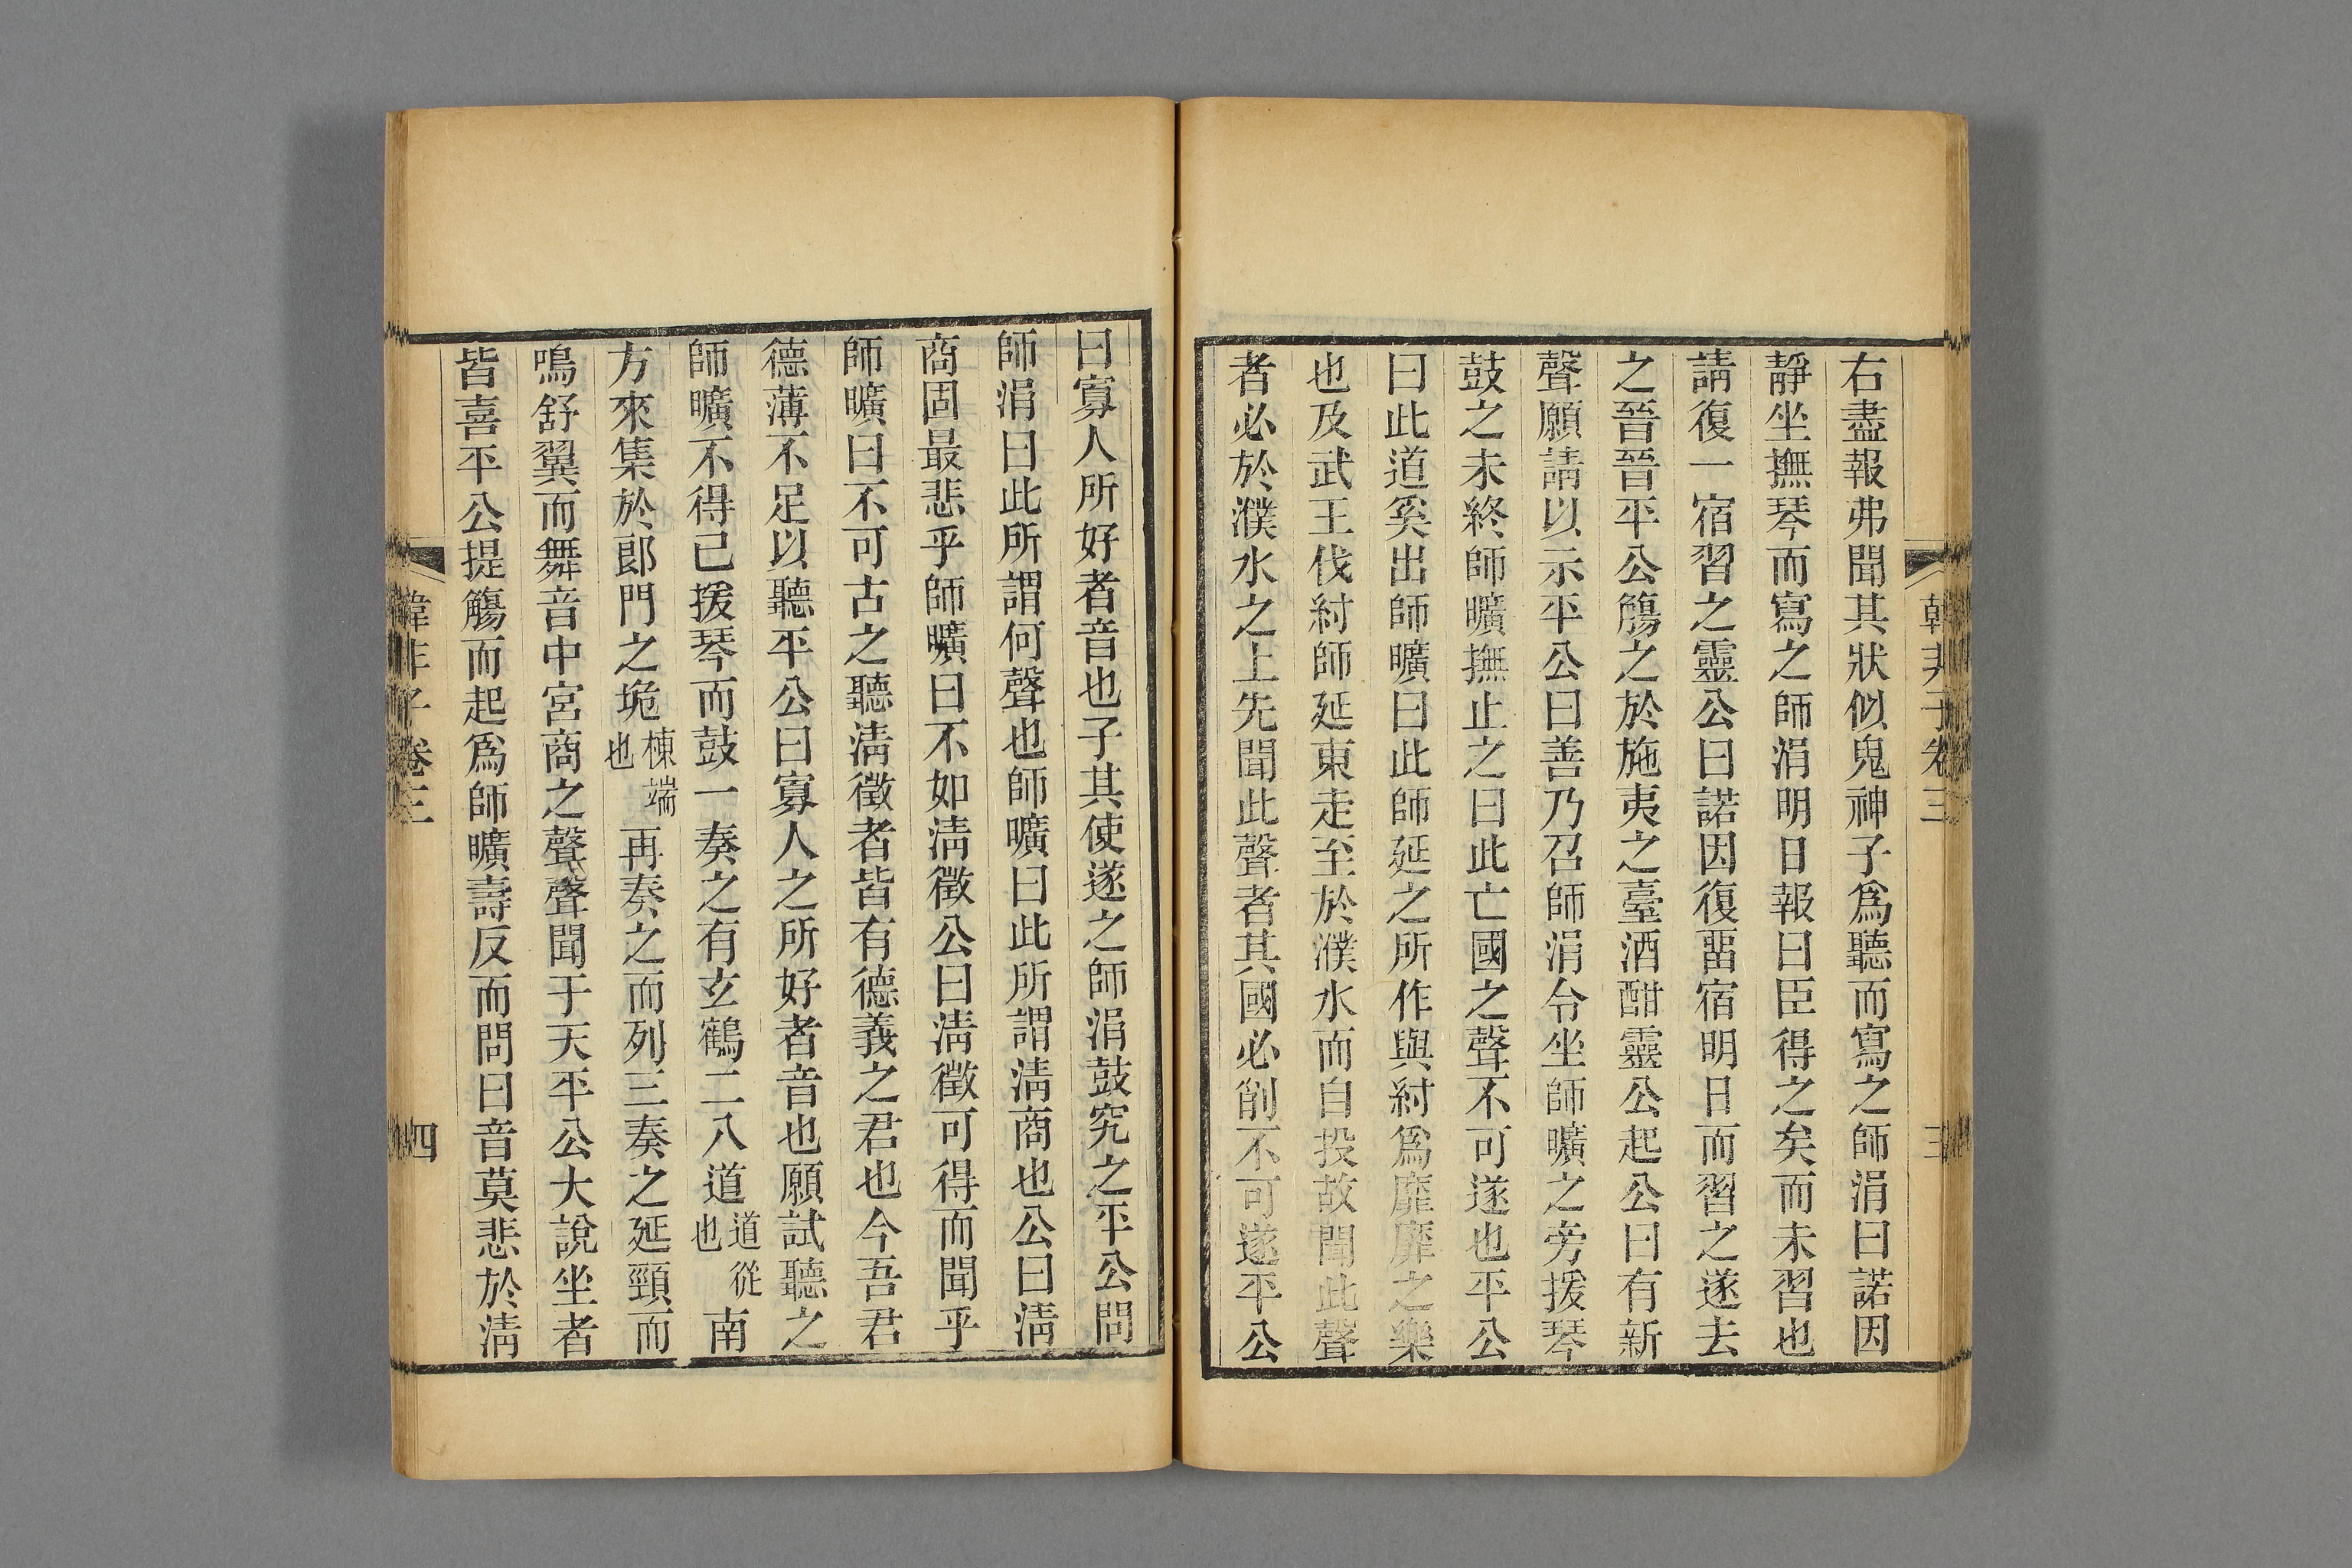 韓非子卷三
三
右盡報弗聞其狀似鬼神子爲聽而寫之師涓曰諾因
靜坐撫琴而寫之師涓明日報曰臣得之矣而未習也
請復一宿習之靈公曰諾因復畱宿明日而習之遂去
之晉晉平公觴之於施夷之臺酒酣靈公起公曰有新
聲願請以示平公曰善乃召師涓令坐師曠之旁援琴
鼓之未終師曠撫止之曰此亡國之聲不可遂也平公
曰此道奚出師曠曰此師延之所作與紂爲靡靡之樂
也及武王伐紂師延東走至於濮水而自投故聞此聲
者必於濮水之上先聞此聲者其國必削不可遂平公
曰寡人所好者音也子其使遂之師涓鼓究之平公問
師涓曰此所謂何聲也師曠曰此所謂淸商也公曰淸
商固最悲乎師曠曰不如淸徵公曰淸徵可得而聞乎
師曠曰不可古之聽淸徵者皆有德義之君也今吾君
德薄不足以聽平公曰寡人之所好者音也願試聽之
師曠不得已援琴而鼓一奏之有玄鶴二八道道從也南
方來集於郎門之垝棟端也再奏之而列三奏之延頸而
鳴舒翼而舞音中宮商之聲聲聞于天平公大說坐者
皆喜平公提觴而起爲師曠壽反而問曰音莫悲於淸
韓非子卷三
四